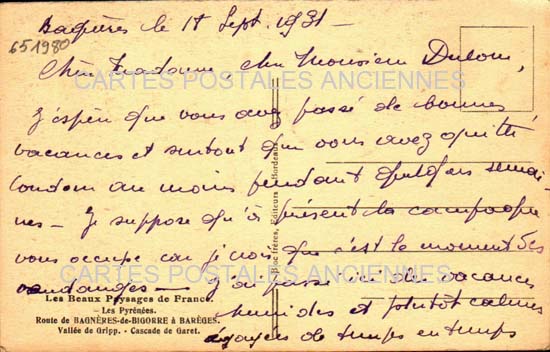 Bagnères le 18 Sept. 1931 -
651980
Chère Madame, cher Monsieur
CARTES POSTALES ANCIENNES
J'espère que vous avez passé de bonnes
vacances et surtout que vous avez quitté
Condom au moins pendant quelques semai
nes - Je suppose qu'à présent la campagne
vous occupe car je crois que c'est le moment des
CARTES POSTALES ANCIENNES
vendanges - J'ai passé ici des vacances
humides et plutôt calmes
égayées de temps en temps
Bloc frères, Editeurs, Bordeaux
Les Beaux Paysages de France.
- Les Pyrénées.
Route de BAGNÈRES-de-BIGORRE à BARÈGES.
Vallée de Gripp. - Cascade de Garet.